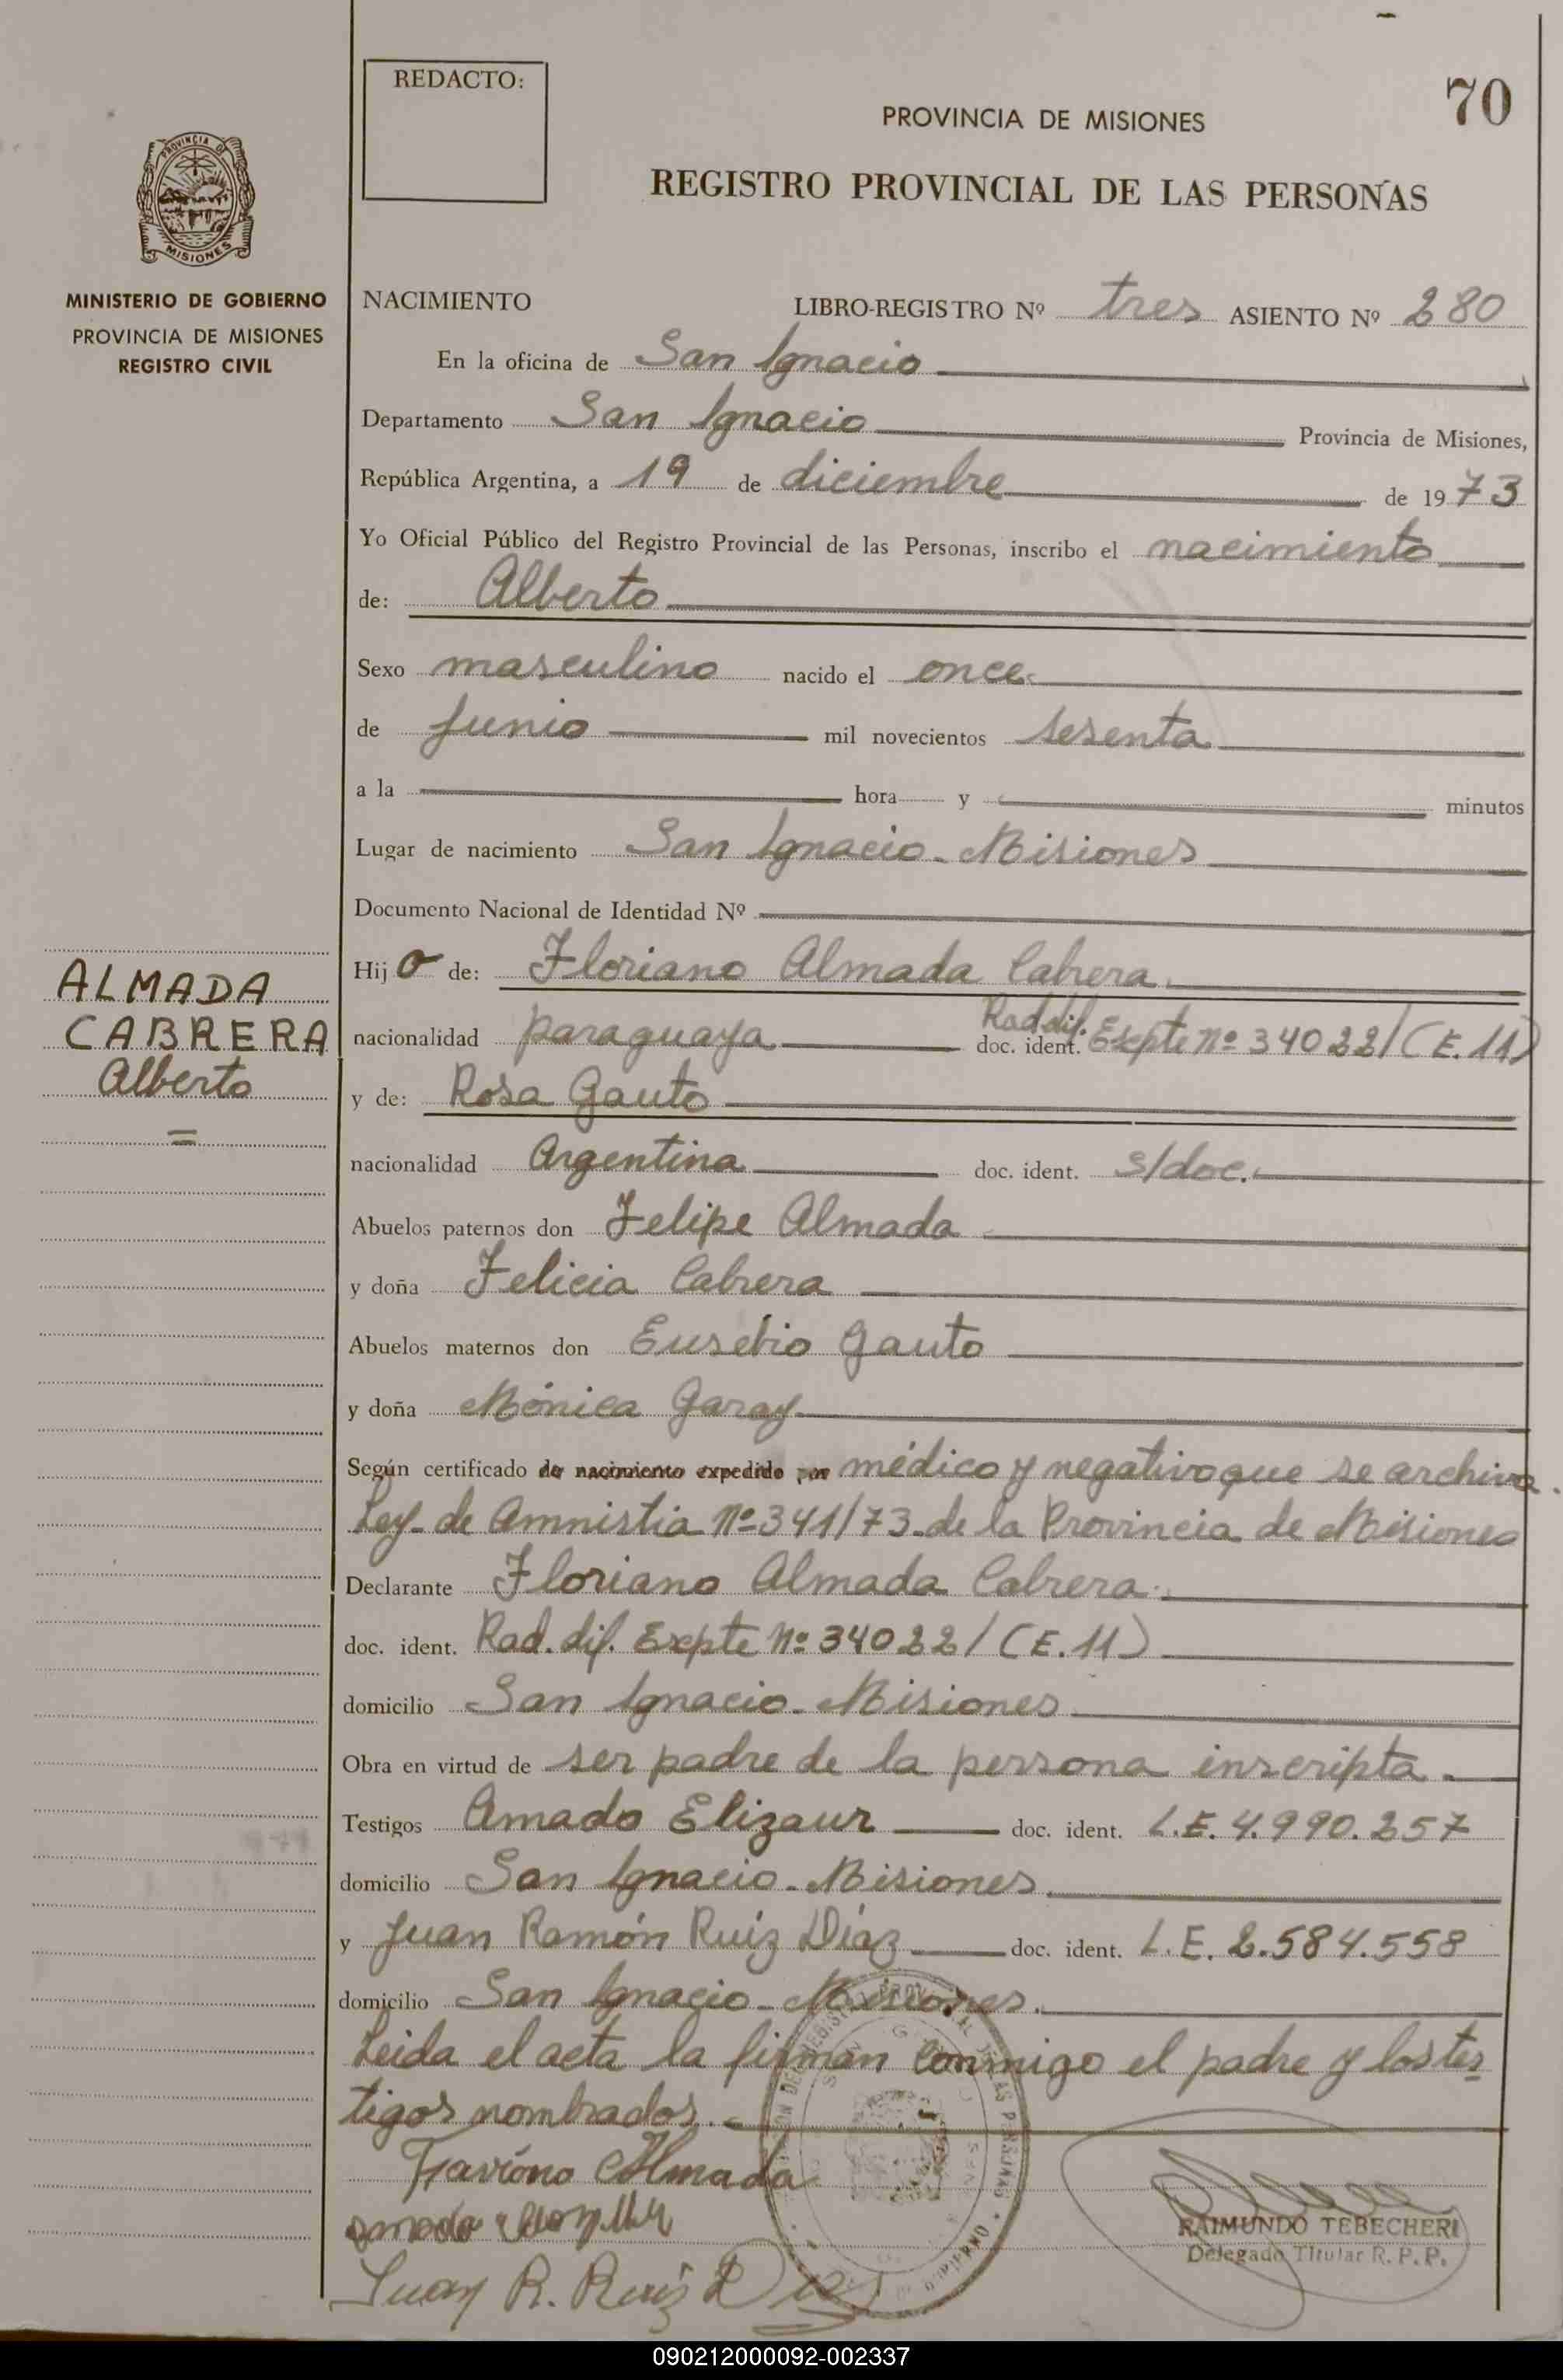 REDACTO:
70
PROVINCIA DE MISIONES
REGISTRO PROVINCIAL DE LAS PERSONAS
PROVINCIA DE
MISIONES
MINISTERIO DE GOBIERNO
PROVINCIA DE MISIONES
REGISTRO CIVIL
NACIMIENTO LIBRO-REGISTRO Nº tres ASIENTO Nº 280
En la oficina de San Ignacio
Departamento San Ignacio Provincia de Misiones,
República Argentina, a 19 de diciembre de 1973
Yo Oficial Público del Registro Provincial de las Personas, inscribo el nacimiento
de: Alberto
Sexo masculino nacido el once
de Junio mil novecientos sesenta
a la hora y minutos
Lugar de nacimiento San Ignacio - Misiones
Documento Nacional de Identidad Nº
Hijo de: Floriano Almada Cabrera
ALMADA
CABRERA
Alberto
nacionalidad paraguaya doc. ident. Rad. dif. Expte Nº 34022/(E.11)
y de: Rosa Gauto
nacionalidad Argentina doc. ident. s/doc.
Abuelos paternos don Felipe Almada
y doña Felicia Cabrera
Abuelos maternos don Eusebio Gauto
y doña Mónica Garay
Según certificado de nacimiento expedido por médico y negativo que se archiva.
Ley de Amnistia Nº 341/73 de la Provincia de Misiones
Declarante Floriano Almada Cabrera
doc. ident. Rad. dif. Expte Nº 34022/(E.11)
domicilio San Ignacio - Misiones
Obra en virtud de ser padre de la persona inscripta.
Testigos Amado Elizaur doc. ident. L.E. 4.990.257
domicilio San Ignacio - Misiones
y Juan Ramón Ruiz Díaz doc. ident. L.E. 2.584.558
domicilio San Ignacio - Misiones.
Leida el acta la firman conmigo el padre y los tes
tigos nombrados.
Almada
Juan R. Ruiz D
RAIMUNDO TEBECHERI
Delegado Titular R. P. P.
090212000092-002337